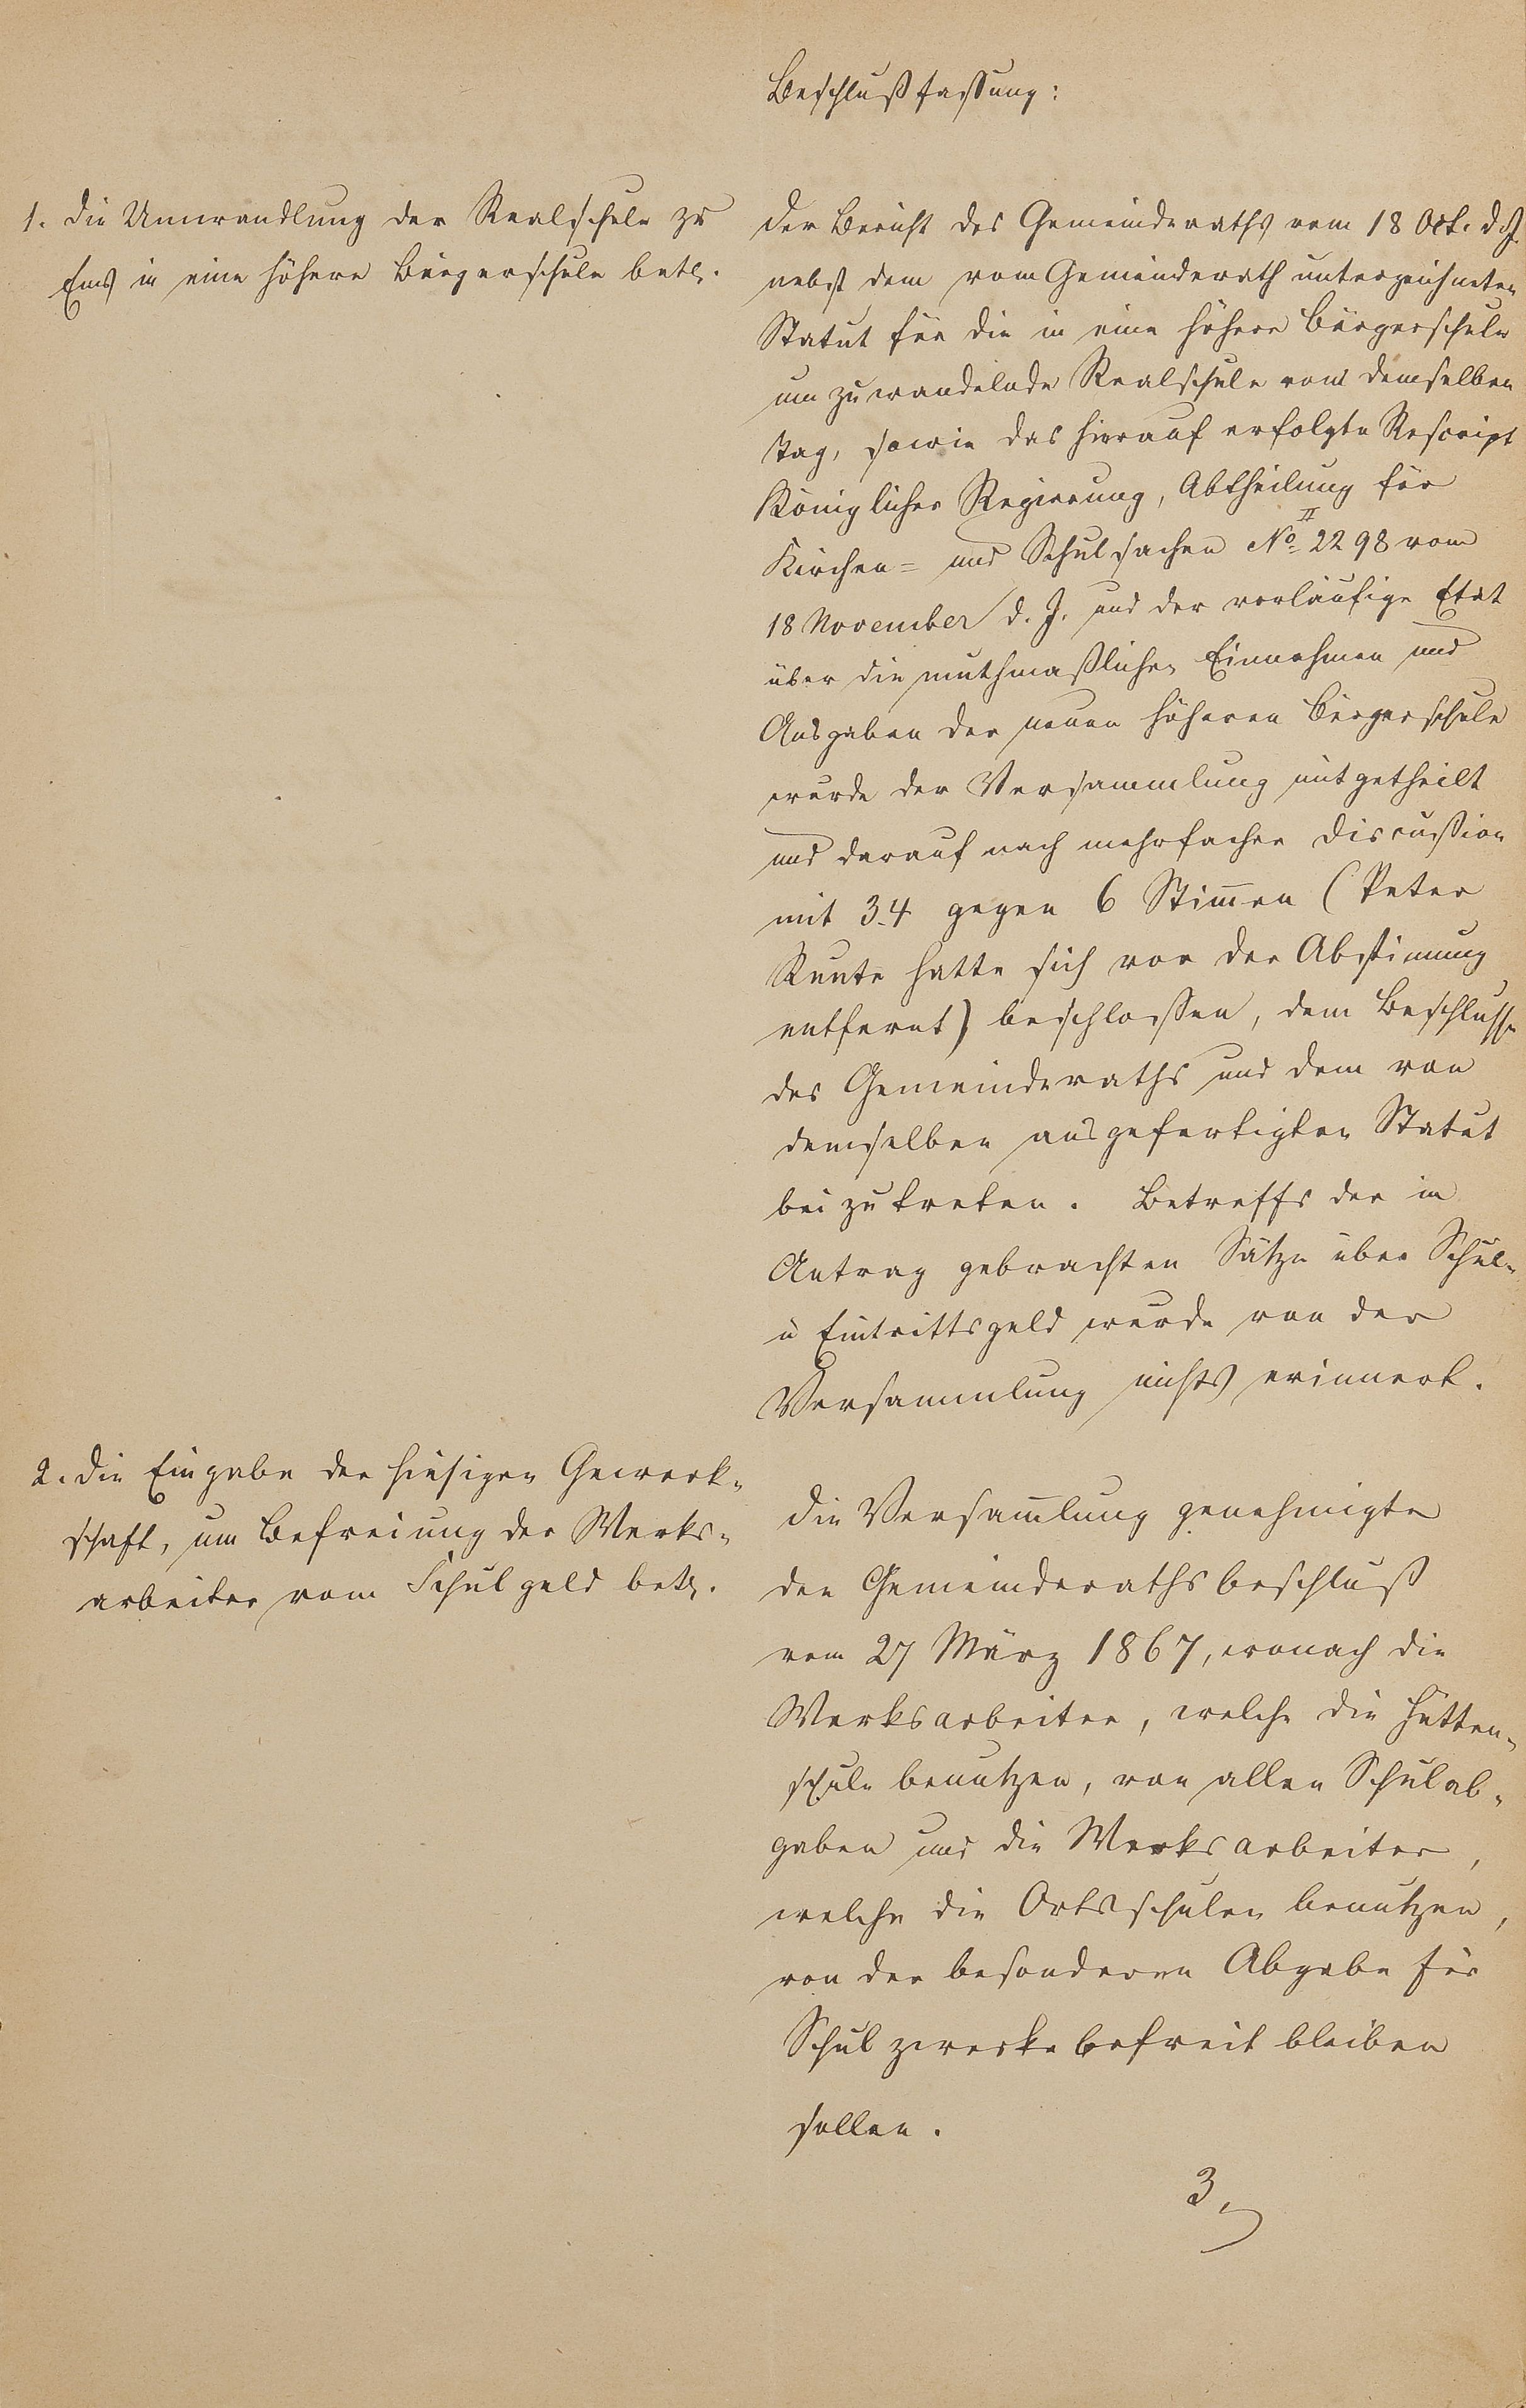 Beschlußfassung:
1. die Umwandlung der Realschule zu
Ems in eine höhere Bürgerschule betr.
Der Bericht des Gemeinderaths vom 18 Okt. d. J.
nebst dem vom Gemeinderath unterzeichneten
Statut für die in eine höhere Bürgerschule
umzuwandelnde Realschule vom demselben
Tag, sowie das hierauf erfolgte Rescript
Königlicher Regierung, Abtheilung für
Kirchen= und Schulsachen No II 2298 vom
18 November d. J. und der vorläufige Etat
über die muthmaßlichen Einnahmen und
Ausgaben der neuen höheren Bürgerschule
wurde der Versammlung mitgetheilt
und darauf nach mehrfacher Discußion
mit 34 gegen 6 Stim̄en (Peter
hatte sich vor der Abstim̄ung
entfernt) beschloßen, dem Beschlusse
des Gemeinderaths und dem von
demselben ausgefertigten Statut
beizutreten. Betreffs der in
Antrag gebrachten Sätze über Schul-
u Eintrittsgeld wurde von der
Versammlung nichts erinnert.
2. die Eingabe der hiesigen Gewerk-
schaft, um Befreiung der Werks-
arbeiter vom Schulgeld betr.
Die Versam̄lung genehmigte
den Gemeinderathsbeschluß
vom 27 März 1867, wonach die
Werksarbeiter, welche die Hütten-
schule benutzen, von allen Schulab-
gaben und die Werksarbeiter,
welche die Ortsschulen benutzen,
von der besonderen Abgabe für
Schulzwecke befreit bleiben
sollen.
3,